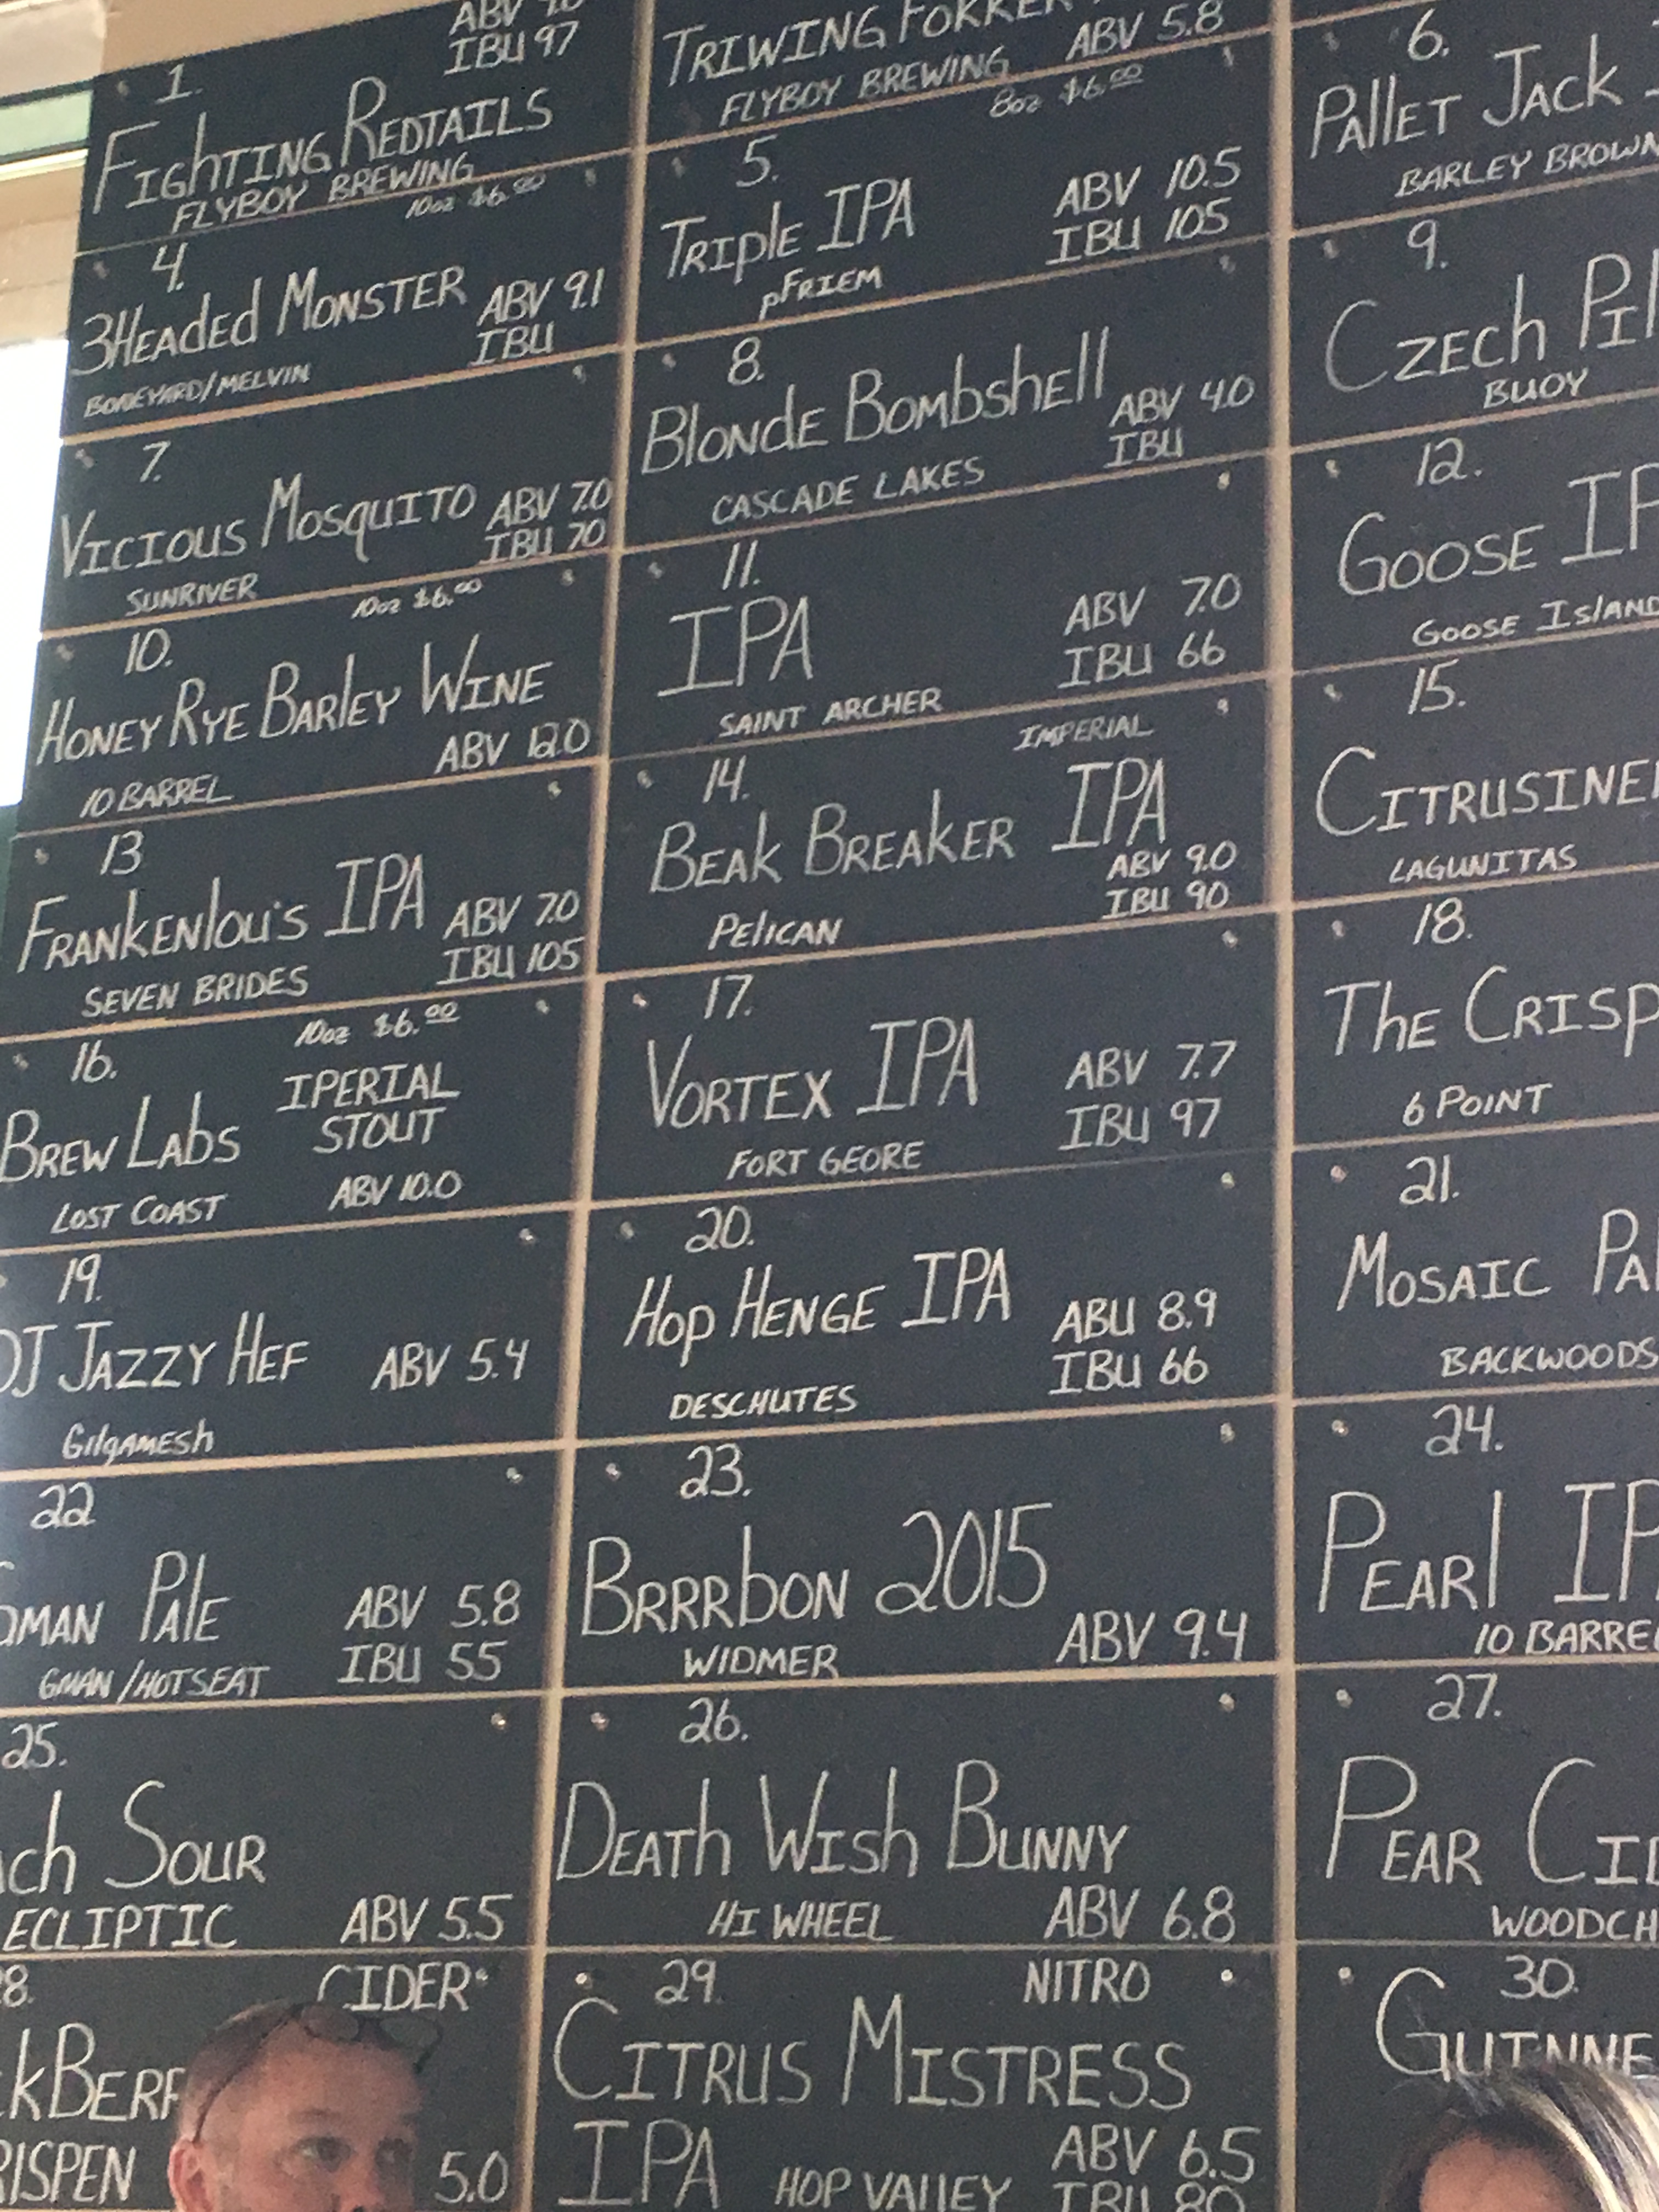 IBU 97
1.
FIGHTING REDTAILS
FLYBOY BREWING
10oz $6.00
4.
3HEADED MONSTER ABV 9.1
IBU
BONEYARD/MELVIN
7.
VICIOUS MOSQUITO ABV 7.0
IBU 70
SUNRIVER
10oz $6.00
10.
HONEY RYE BARLEY WINE
ABV 12.0
10 BARREL
13
FRANKENLOU'S IPA ABV 7.0
IBU 105
SEVEN BRIDES
10oz $6.00
16.
IPERIAL
STOUT
BREW LABS
LOST COAST ABV 10.0
19.
DJ JAZZY HEF ABV 5.4
GILGAMESH
22
OMAN PALE ABV 5.8
GMAN/HOTSEAT IBU 55
25.
CH SOUR
ECLIPTIC ABV 5.5
8. CIDER
KBERR
RISPEN 5.0
TRIWING FOKKER
FLYBOY BREWING ABV 5.8
8oz $6.00
5.
TRIPLE IPA ABV 10.5
IBU 105
pFRIEM
8.
BLONDE BOMBSHELL
ABV 4.0
IBU
CASCADE LAKES
11.
IPA ABV 7.0
IBU 66
SAINT ARCHER
IMPERIAL
14.
BEAK BREAKER IPA
ABV 9.0
IBU 90
PELICAN
17.
VORTEX IPA ABV 7.7
IBU 97
FORT GEORE
20.
HOP HENGE IPA ABU 8.9
IBU 66
DESCHUTES
23.
BRRRBON 2015
WIDMER ABV 9.4
26.
DEATH WISH BUNNY
HI WHEEL ABV 6.8
29. NITRO
CITRUS MISTRESS
IPA ABV 6.5
HOP VALLEY IBU 80
6.
PALLET JACK
BARLEY BROWN
9.
CZECH PIL
BUOY
12.
GOOSE IP
GOOSE ISLAND
15.
CITRUSINE
LAGUNITAS
18.
THE CRISP
6 POINT
21.
MOSAIC PA
BACKWOODS
24.
PEARL IP
10 BARRE
27.
PEAR CI
WOODCH
30.
GUINNE